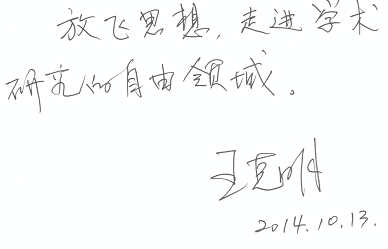 放飞思想，走进学术
研究的自由领域。
王克明
2014.10.13.